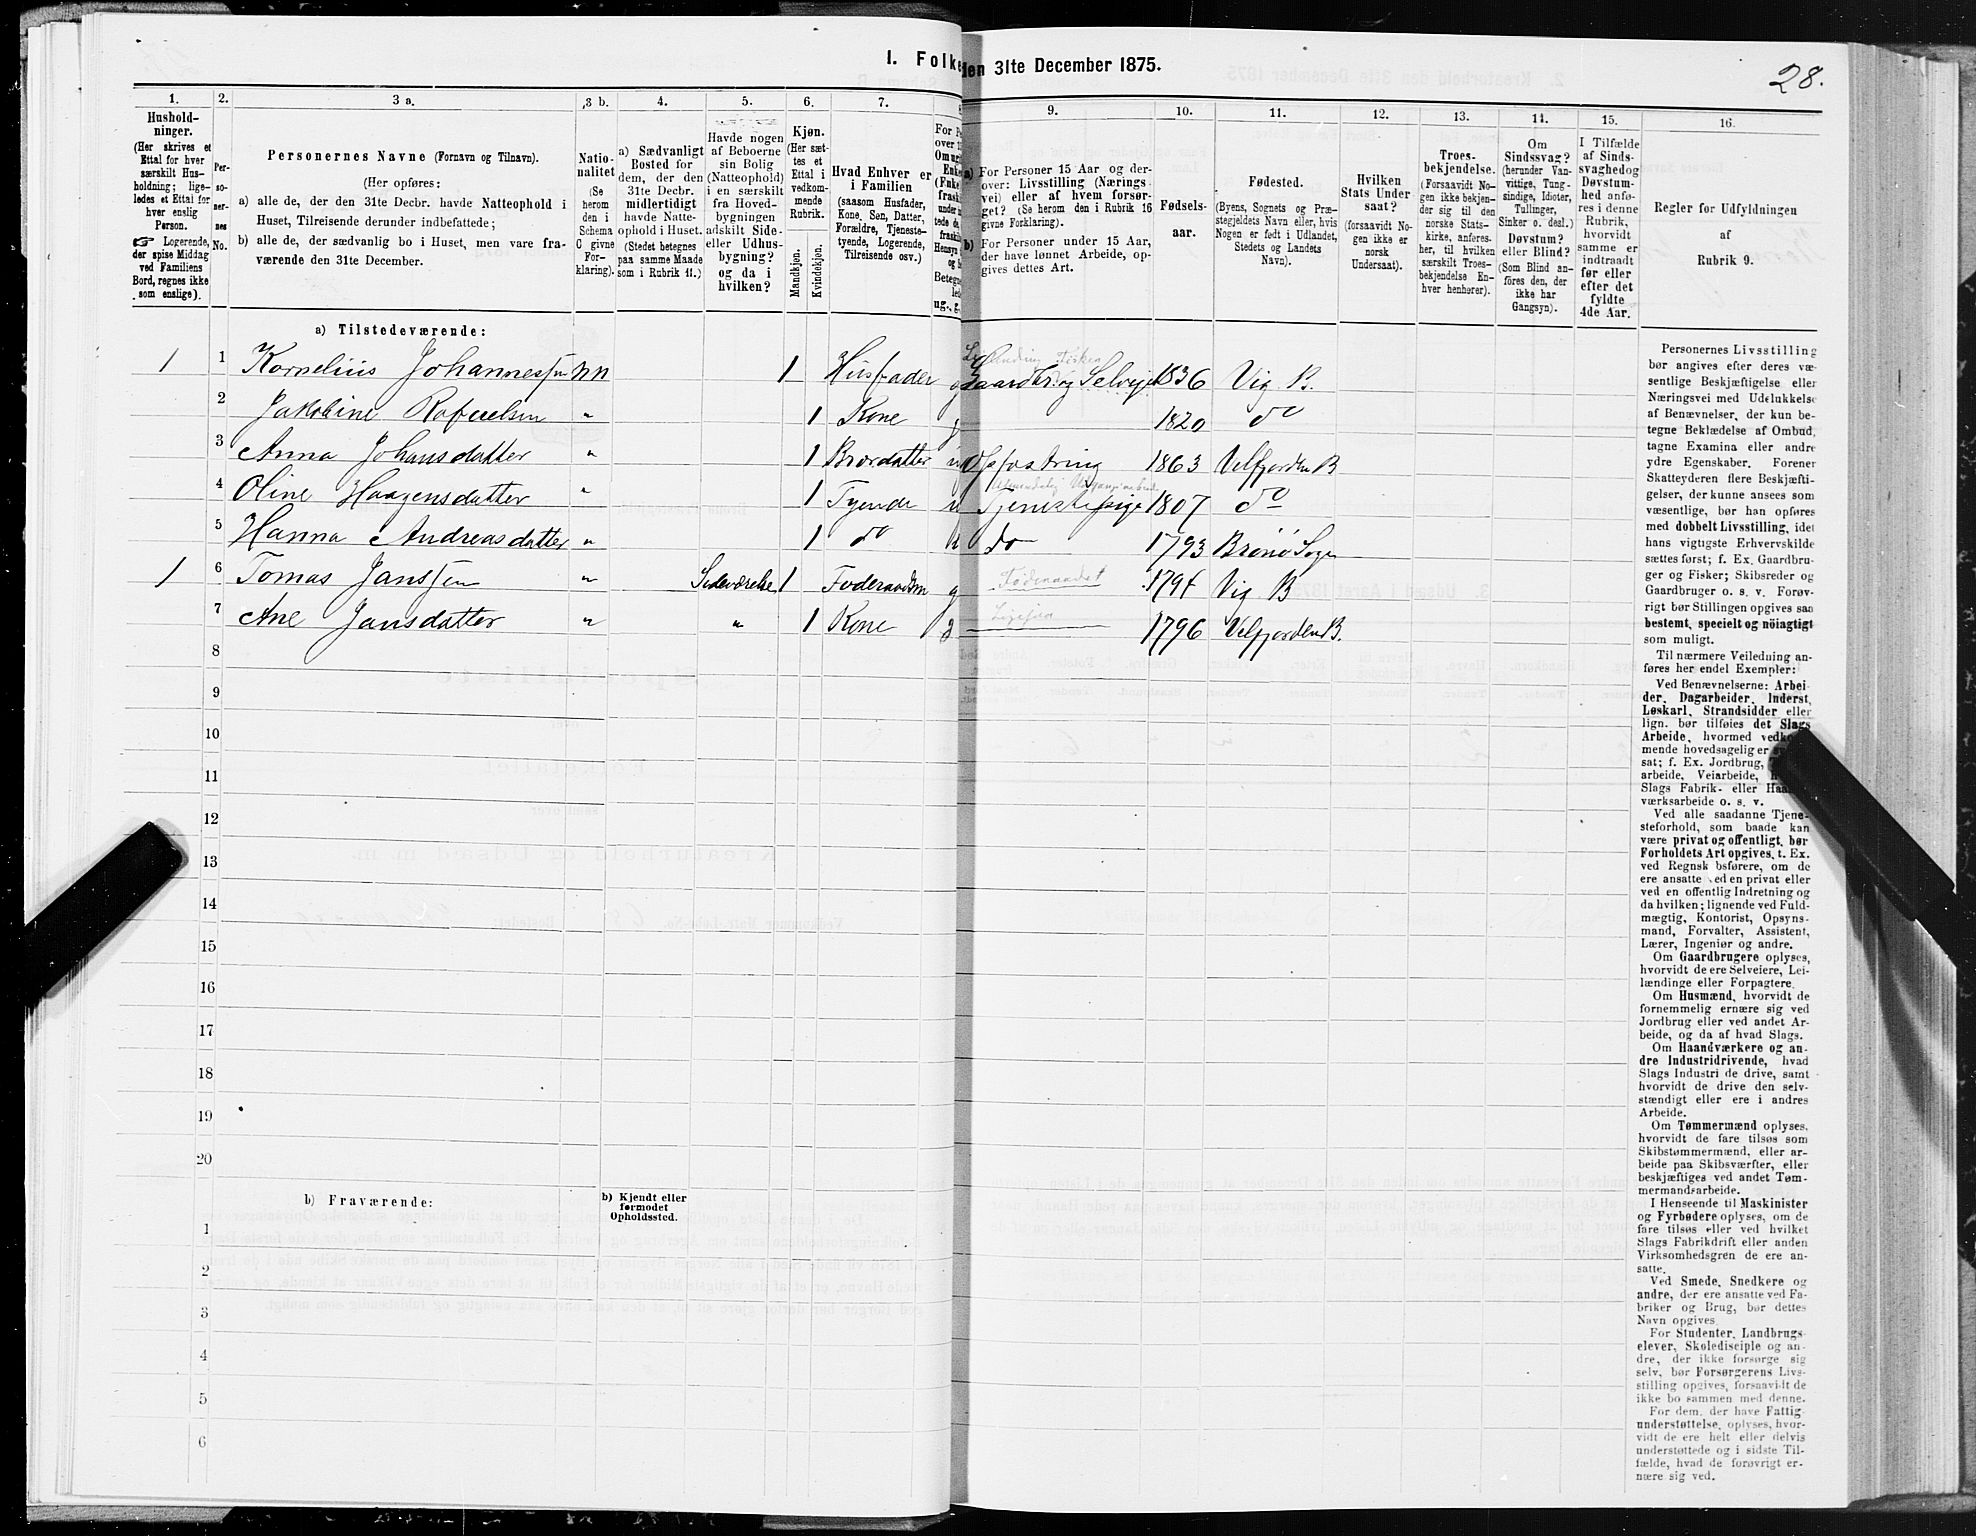 I. Folke den 31te December 1875.
28.
1. 2. 3 a. 3 b. 4. 5. 6. 7. 8 9. 10. 11. 12. 13. 14. 15. 16.
Hushold-
ninger.
(Her skrives et
Ettal for hver
særskilt Hus-
holdning; lige-
ledes et Ettal for
hver enslig
Person.
☞ Logerende,
der spise Middag
ved Familiens
Bord, regnes ikke
som enslige).
Per-
so-
ner-
nes
No.
Personernes Navne (Fornavn og Tilnavn).
(Her opføres:
a) alle de, der den 31te Decbr. havde Natteophold i
Huset, Tilreisende derunder indbefattede;
b) alle de, der sædvanlig bo i Huset, men vare fra-
værende den 31te December.
Natio-
nalitet
(Se
herom
den i
Schema
C givne
For-
klaring).
a) Sædvanligt
Bosted for
dem, der den
31te Decbr.
midlertidigt
havde Natte-
ophold i Huset.
(Stedet betegnes
paa samme Maade
som i Rubrik 11.)
Havde nogen
af Beboerne
sin Bolig
(Natteophold)
i en særskilt
fra Hoved-
bygningen
adskilt Side-
eller Udhus-
bygning?
og da i
hvilken?
Kjøn.
(Her sæt-
tes et
Ettal i
vedkom-
mende
Rubrik.
Mandkjøn.
Kvindekjøn.
Hvad Enhver er
i Familien
(saasom Husfader,
Kone, Søn, Datter,
Forældre, Tjeneste-
tyende, Logerende,
Tilreisende osv.)
For Pe
over 1
Om ug
Enke
(Enke
fraski
under
tede de
fraski
Hensyn
og b
Betegn
lede
ug., g.
a) For Personer 15 Aar og der-
over: Livsstilling (Nærings-
vei) eller af hvem forsør-
get? (Se herom den i Rubrik 16
givne Forklaring).
b) For Personer under 15 Aar,
der have lønnet Arbeide, op-
gives dettes Art.
Fødsels-
aar.
Fødested.
(Byens, Sognets og Præ-
stegjeldets Navn eller, hvis
Nogen er født i Udlandet,
Stedets og Landets
Navn).
Hvilken
Stats Under-
saat?
(forsaavidt No-
gen ikke er
norsk
Undersaat).
Troes-
bekjendelse.
(Forsaavidt No-
gen ikke bekjen-
der sig til den
norske Stats-
kirke, anføres
her, til hvilken
særskilt Troes-
bekjendelse En-
hver henhører).
Om
Sindssvag?
(herunder Van-
vittige, Tung-
sindige, Idioter,
Tullinger,
Sinker o. desl.)
Døvstum?
eller Blind?
(Som Blind an-
føres den, der
ikke har
Gangsyn).
I Tilfælde
af Sinds-
svaghed og
Døvstum-
hed anfø-
res i denne
Rubrik,
hvorvidt
samme er
indtraadt
før eller
efter det
fyldte
4de Aar.
Regler for Udfyldningen
af
Rubrik 9.
a) Tilstedeværende:
Leilænding Fisker
1 1 Kornelius Johannessen nn 1 Husfader g Gaardbr. og Selveier 1836 Vig B.
2 Jakobine Rafaelsen " 1 Kone g 1820 do
3 Anna Johansdatter " 1 Brordatter u Opfostring 1863 Velfjorden B
4 Oline Haagensdatter " 1 Tyende u Tjenestepige 1807 do
5 Hanna Andreasdatter " 1 do u do 1793 Brønø Sogn
1 6 Tomas Janssen " Sideværelse 1 Foderaadsm g Føderaadst 1794 Vig B
7 Ane Jansdatter " " 1 Kone g 1796 Velfjorden B.
8
9
10
11
12
13
14
15
16
17
18
19
20
b) Fraværende:
b) Kjendt eller
formodet
Opholdssted.
1
2
3
4
5
6
Personernes Livsstilling
bør angives efter deres væ-
sentlige Beskjæftigelse eller
Næringsvei med Udelukkelse
af Benævnelser, der kun be-
tegne Beklædelse af Ombud,
tagne Examina eller andre
ydre Egenskaber. Forener
Skatteyderen flere Beskjæfti-
gelser, der kunne ansees som
væsentlige, bør han opføres
med dobbelt Livsstilling, idet
hans vigtigste Erhvervskilde
sættes først; f. Ex. Gaardbru-
ger og Fisker; Skibsreder og
Gaardbruger o. s. v. Forøv-
rigt bør Stillingen opgives saa
bestemt, specielt og nöiagtigt
som muligt.
Til nærmere Veiledning an-
føres her endel Exempler:
Ved Benævnelserne: Arbei-
der, Dagarbeider, Inderst,
Løskarl, Strandsidder eller
lign. bør tilføies det Slags
Arbeide, hvormed vedkom-
mende hovedsagelig er
sat; f. Ex. Jordbrug,
arbeide, Veiarbeide,
Slags Fabrik- eller Haand-
værksarbeide o. s. v.
Ved alle saadanne Tjene-
steforhold, som baade kan
være privat og offentligt, bør
Forholdets Art opgives, t. Ex.
ved Regnsk bsførere, om de
ere ansatte ved en privat eller
ved en offentlig Indretning og
da hvilken; lignende ved Fuld-
mægtig, Kontorist, Opsyns-
mand, Forvalter, Assistent,
Lærer, Ingeniør og andre.
Om Gaardbrugere oplyses,
hvorvidt de ere Selveiere, Lei-
lændinge eller Forpagtere.
Om Husmænd, hvorvidt de
fornemmelig ernære sig ved
Jordbrug eller ved andet Ar-
beide, og da af hvad Slags.
Om Haandværkere og an-
dre Industridrivende, hvad
Slags Industri de drive, samt
hvorvidt de drive den selv-
stændigt eller ere i andres
Arbeide.
Om Tømmermænd oplyses,
hvorvidt de fare tilsøs som
Skibstømmermænd, eller ar-
beide paa Skibsværfter, eller
beskjæftiges ved andet Tøm-
mermandsarbeide.
I Henseende til Maskinister
og Fyrbødere oplyses, om de
fare tilsøs eller ved hvilket
Slags Fabrikdrift eller anden
Virksomhedsgren de ere an-
satte.
Ved Smede, Snedkere og
andre, der ere ansatte ved Fa-
briker og Brug, bør dettes
Navn opgives.
For Studenter, Landbrugs-
elever, Skoledisciple og an-
dre, der ikke forsørge sig
selv, bør Forsørgerens Livs-
stilling opgives, forsaavidt de
ikke bo sammen med denne.
For dem, der have Fattig-
understøttelse, oplyses, hvor-
vidt de ere helt eller delvis
understøttede og i sidste Til-
fælde, hvad de forøvrigt er-
nære sig ved.